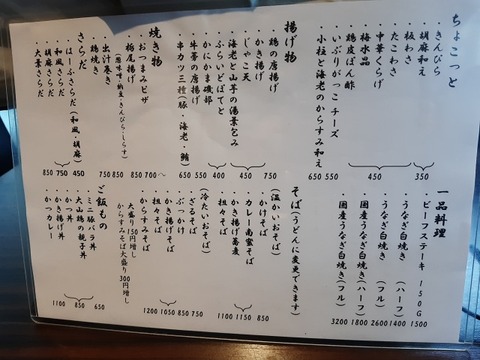 ちょこっと
・きんぴら
・胡麻和え
350
・板わさ
・たこわさ
・中華くらげ
・梅水晶
450
・鶏皮ぽん酢
・いぶりがっこチーズ
550
・小柱と海老のからすみ和え
650
揚げ物
・鶏の唐揚げ
・かき揚げ
・じゃこ天
750
・海老と山芋の湯葉包み
450
・ふらいどぽてと
・かにかま磯部
400
・牛蒡の唐揚げ
550
・串カツ三種(豚・海老・鱚)
650
焼き物
・おつまみピザ
700〜
・栃尾揚げ
(葱味噌・納豆・きんぴら・しらす)
850
・出汁巻き
850
・鶏焼き
750
さらだ
・はーふさらだ(和風・胡麻)
450
・和風さらだ
・胡麻さらだ
750
・大葉さらだ
850
一品料理
・ビーフステーキ 150G
1500
・うなぎ白焼き(ハーフ)
1400
・うなぎ白焼き(フル)
2600
・国産うなぎ白焼き(ハーフ)
1800
・国産うなぎ白焼き(フル)
3200
そば(うどんに変更できます)
(温かいおそば)
・かけそば
850
・カレー南蛮そば
1150
・かき揚げ蕎麦
・担々そば
1100
(冷たいおそば)
・ざるそば
750
・ぶっかけ
850
・かき揚げそば
・担々そば
1050
・からすみそば
1200
大盛り150円増し
からすみそば大盛り300円増し
ご飯もの
・ミニ豚バラ丼
650
・大山鶏の親子丼
・かつ丼
850
・かき揚げ丼
・かつカレー
1100